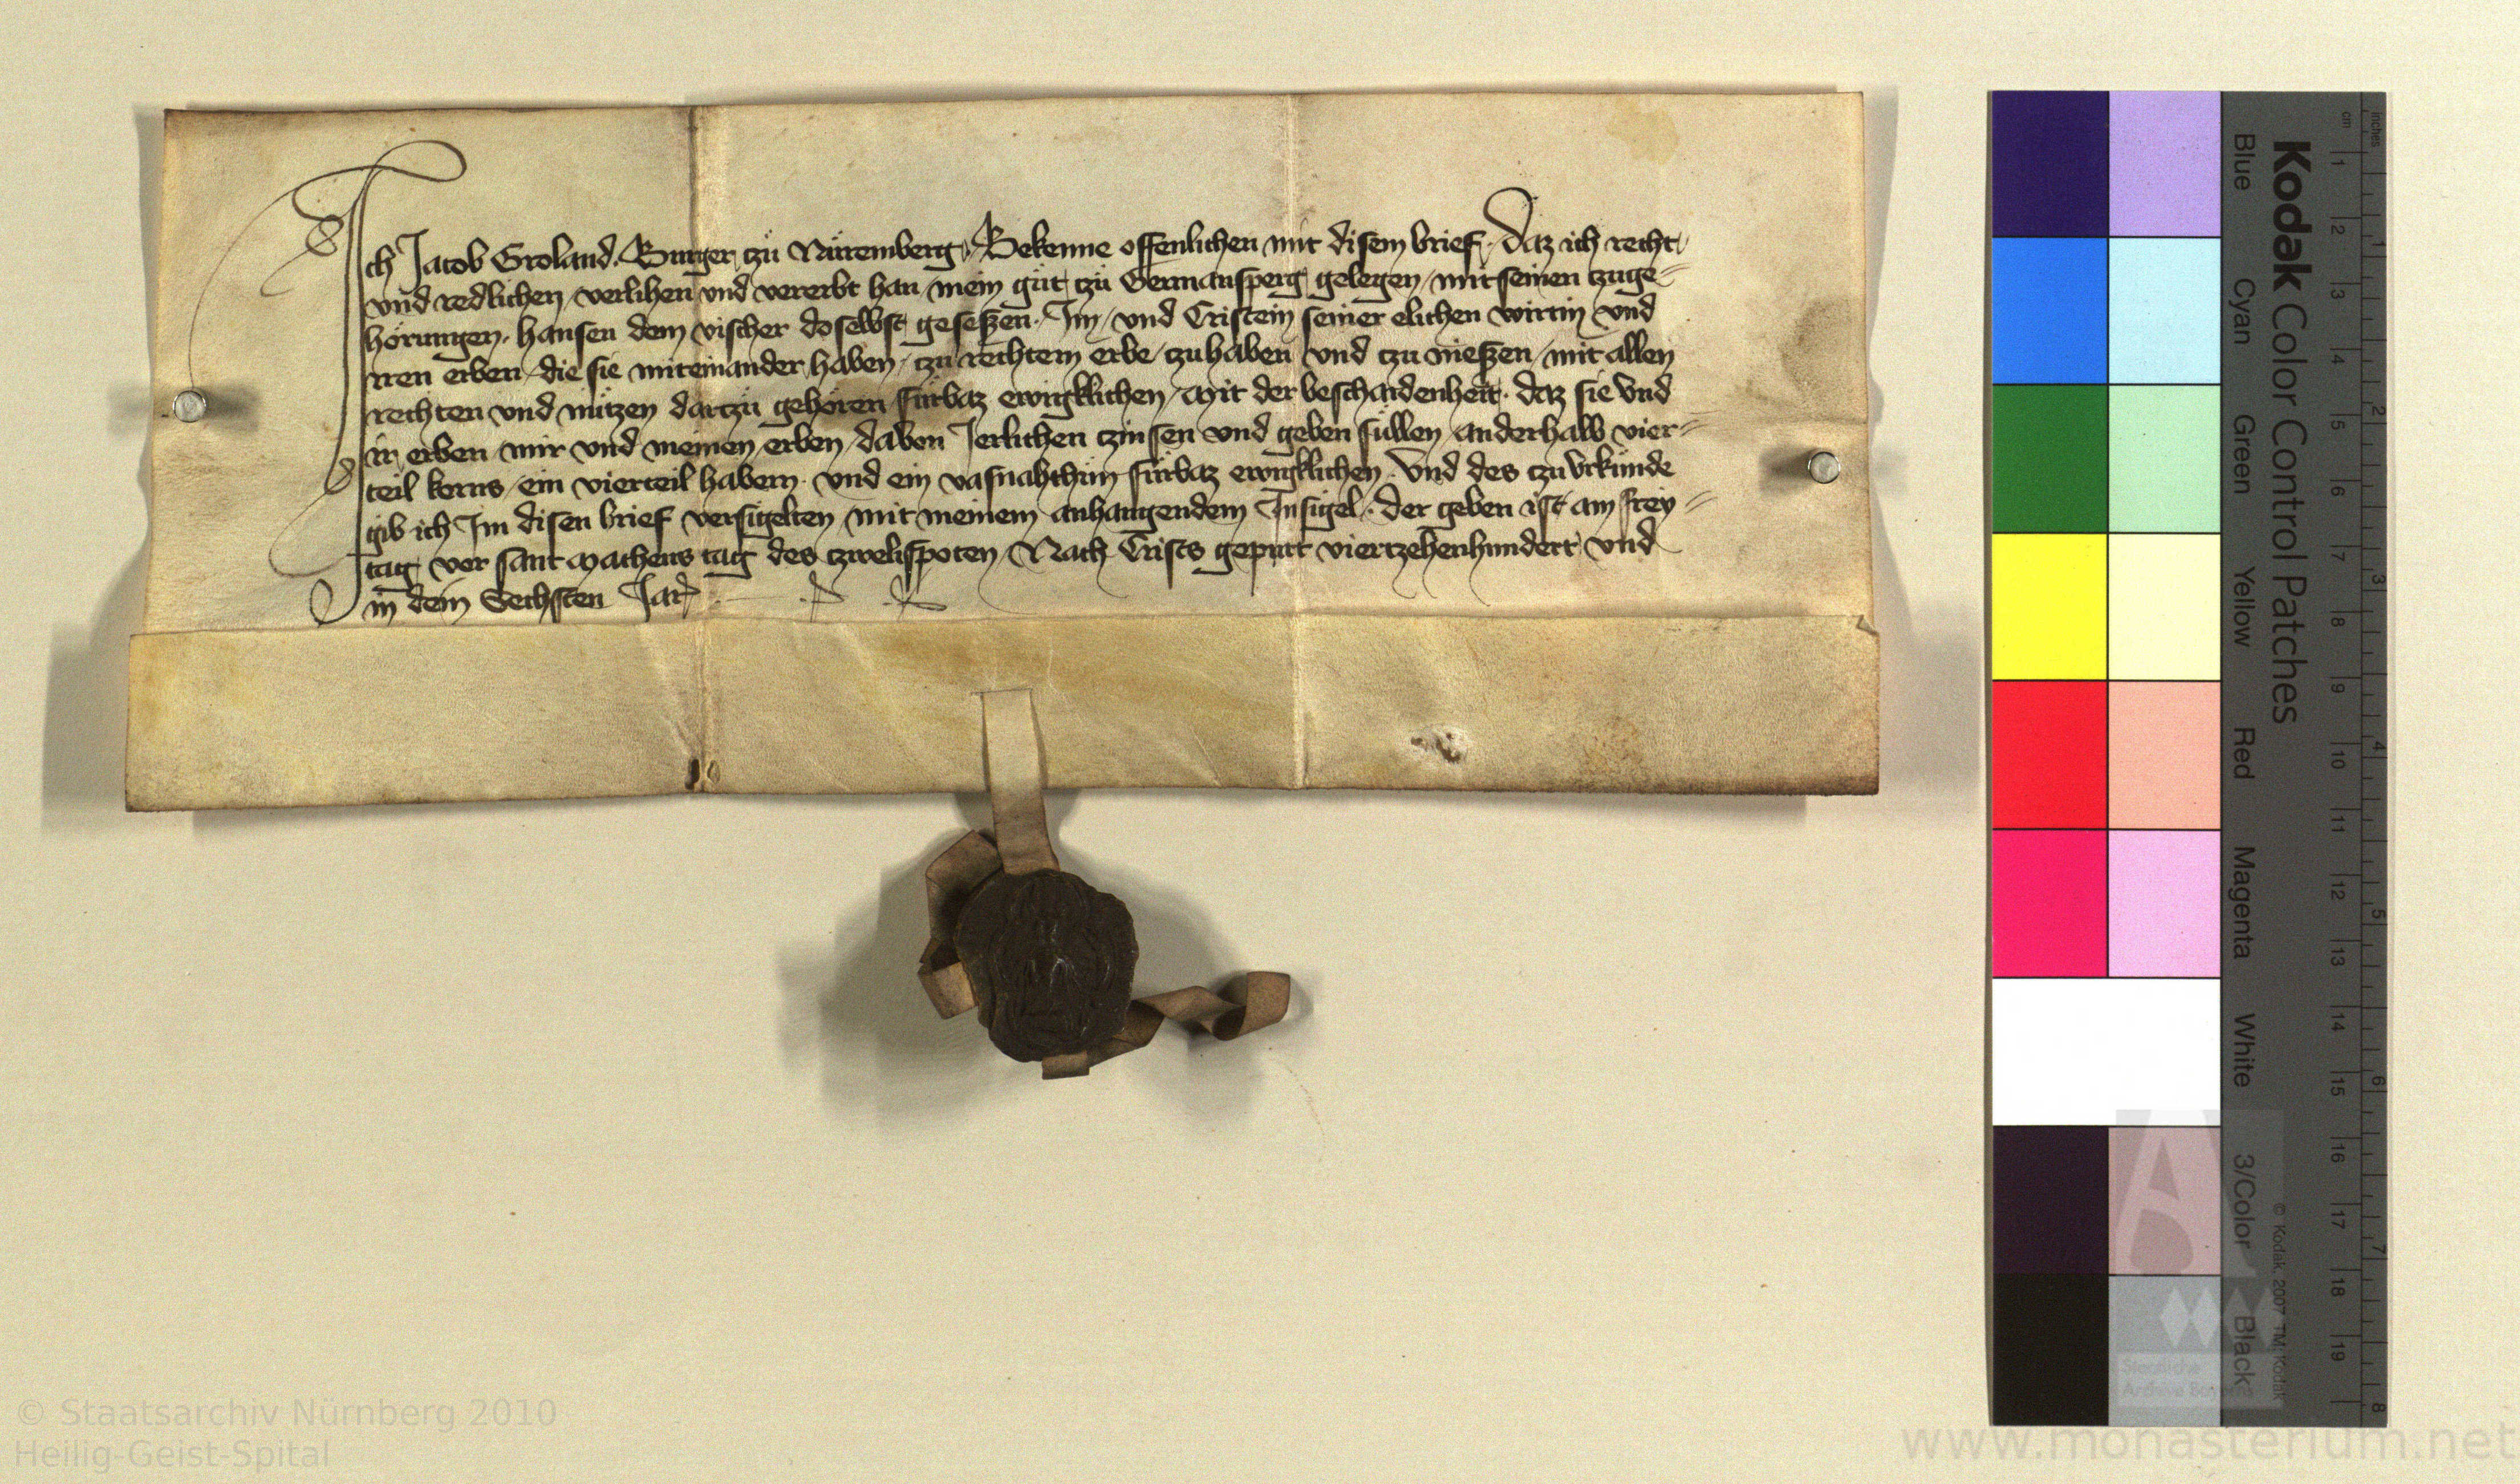 Ich Jacob Groland. Burger zu Nüremberg. Bekenne offenlichen mit disem brief. Daz ich recht
vnd redlichen verlihen vnd vererbt han mein güt zu Germansperg gelegen mit seinen zuge=
hörungen. Hansen dem vischer doselbst gesessen. Im vnd Cristein seiner elichen wirtin vnd
iren erben die sie miteinander haben zu rechtem erbe zuhaben vnd zu niessen mit allen
rechten vnd nützen dartzü gehören fürbaz ewigklichen Mit der beschaidenheit. daz sie vnd
ir erben mir vnd meinen erben davon Jerlichen zinsen vnd geben süllen anderhalb vier=
teil korns ein vierteil habern. vnd ein vasnahthun fürbaz ewigklichen. Vnd des zu vrkünde
gib ich Im disen brief versigelten mit meinem anhangendem Insigel. Der geben ist am Frey=
tag vor sant Matheus tag des zwelfpoten Nach Crists gepurt viertzehenhundert vnd
in dem Sechsten Jar
Kodak Color Control Patches
Blue Cyan Green Yellow Red Magenta White 3/Color Black
© Kodak, 2007 TM: Kodak
cm 1 2 3 4 5 6 7 8 9 10 11 12 13 14 15 16 17 18 19
inches 1 2 3 4 5 6 7 8
Staatliche
Archive Bayerns
© Staatsarchiv Nürnberg 2010
Heilig-Geist-Spital
www.monasterium.net